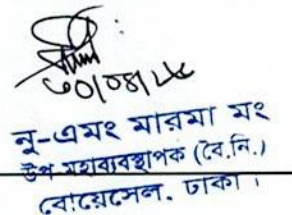 ৩০/০৪/২৫
নু-এমং মারমা মং
উপ-মহাব্যবস্থাপক (বৈ.নি.)
বোয়েসেল, ঢাকা।